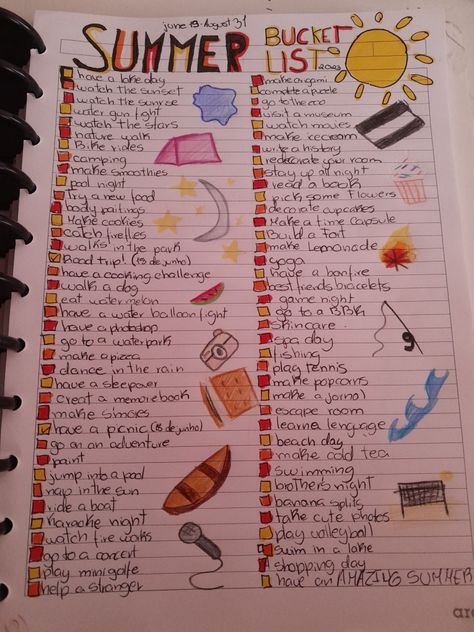 june 19 - August 31
SUMMER BUCKET LIST 2023
have a lake day
watch the sunset
watch the sunrise
water gun fight
watch the stars
nature walk
Bike rides
camping
make smoothies
pool night
try a new food
body paitings
Make cookies
catch fireflies
walks in the park
Road trip! (15 de junho)
have a cooking challenge
walk a dog
eat watermelon
have a water balloon fight
have a photoshop
go to a waterpark
make a pizza
dance in the rain
have a sleepover
creat a memorebook
make smores
have a picnic (15 de junho)
go on an adventure
paint
jump into a pool
nap in the sun
ride a boat
Karaoke night
watch fire works
go to a concert
play mini golfe
help a stranger
make origami
complete a puzzle
go to the zoo
visit a museum
watch movies
make icecream
write a history
redecorate your room
stay up all night
read a book
pick some flowers
decorate cupcakes
Make a time capsule
Build a fort
make lemonade
yoga
have a bonfire
best friends bracelets
game night
go to a BBK
skincare
spa day
fishing
play tennis
make popcorns
make a jornal
escape room
learn a lenguage
beach day
make cold tea
swimming
brothers night
banana splits
take cute photos
play valleyball
swim in a lake
A shopping day
have an AMAZING SUMMER